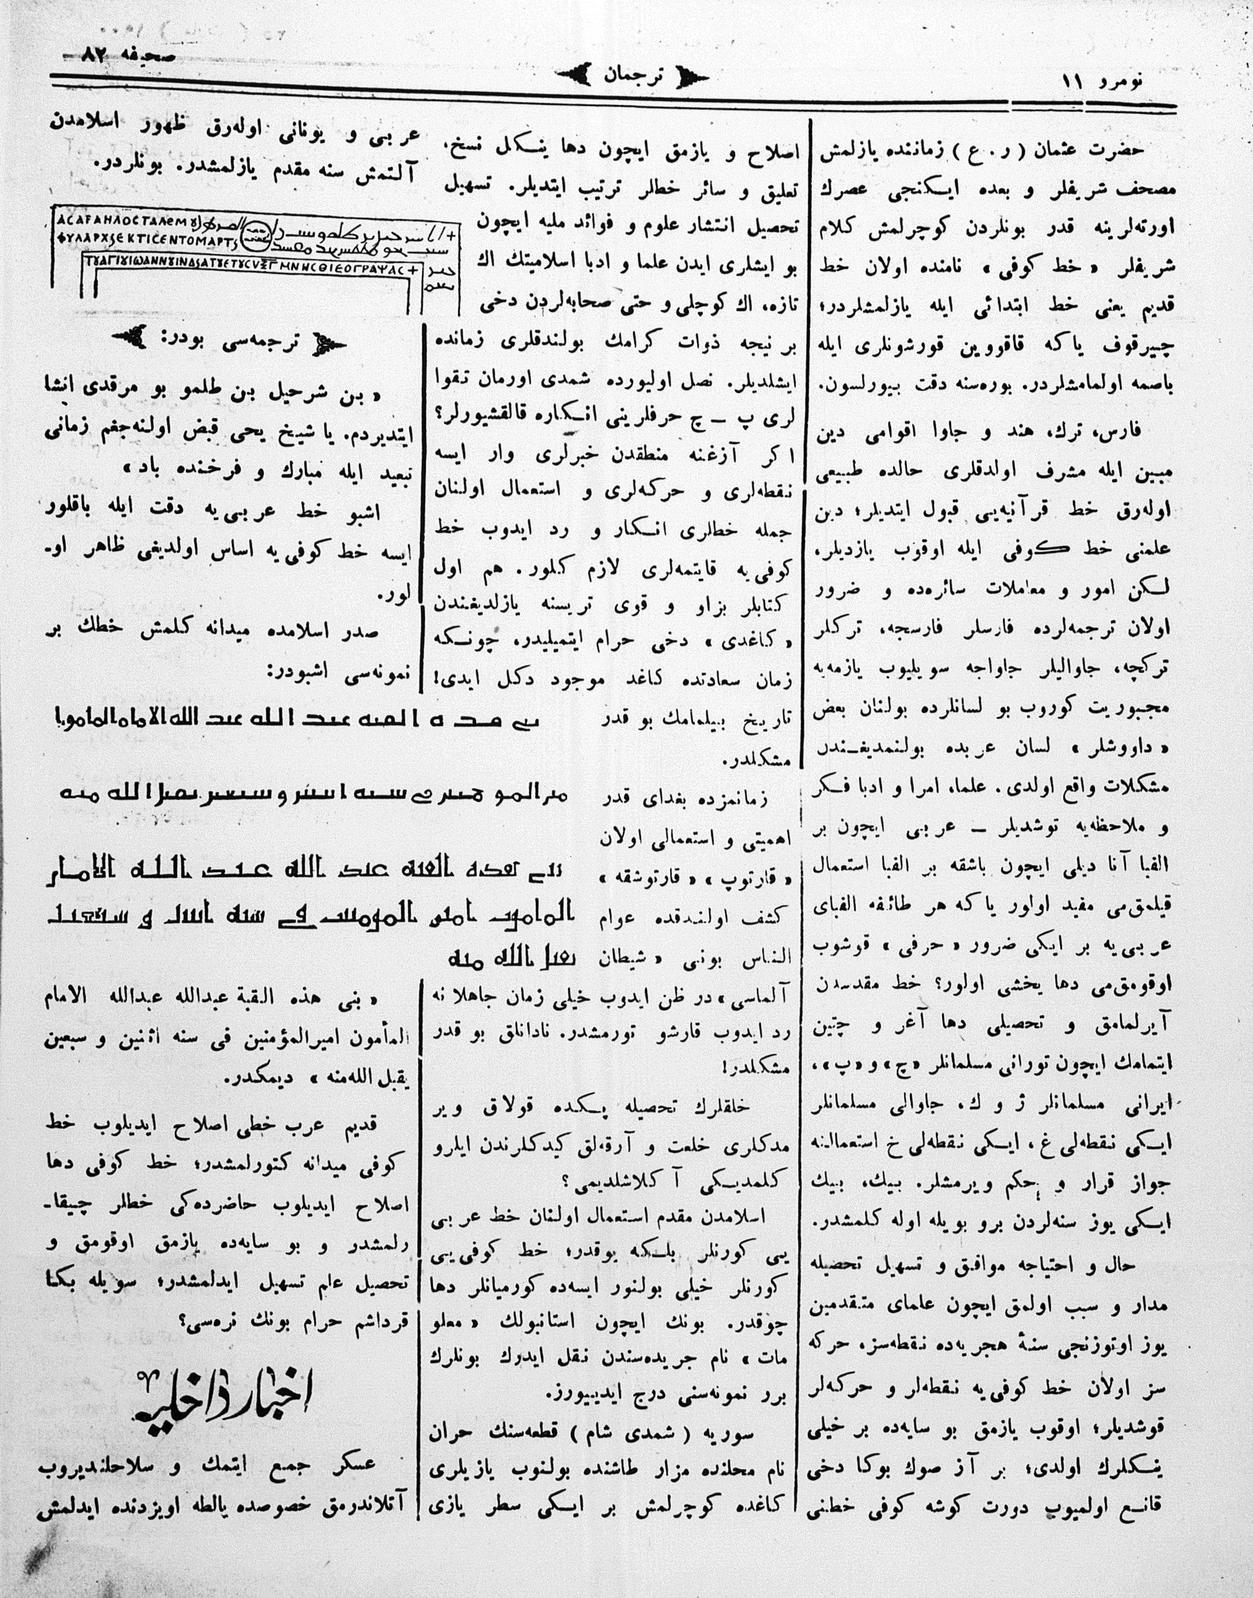 نومرو ١١
ترجمان
صحیفه ٨٢
حضرت عثمان (ر. ع) زماننده یازلمش
مصحف شریفلر و بعده ایكنجی عصرك
اورته‌لرینه قدر بونلردن كوچرلمش كلام
شریفلر «خط كوفی» نامنده اولان خط
قدیم یعنی خط ابتدائی ایله یازلمشلردر؛
چیرقوف یاكه قاقووین قورشونلری ایله
باصمه اولمامشلردر. بوره‌سنه دقت بیورلسون.
فارس، ترك، هند و جاوا اقوامی دین
مبین ایله مشرف اولدقلری حالده طبیعی
اوله‌رق خط قرآنیه‌یی قبول ایتدیلر؛ دین
علمنی خط كوفی ایله اوقوب یازدیلر،
لكن امور و معاملات سائره‌ده و ضرور
اولان ترجمه‌لرده فارسلر فارسجه، تركلر
تركچه، جاوالیلر جاواجه سویلیوب یازمه‌به
مجبوریت كوروب بو لسانلرده بولنان بعض
«داووشلر» لسان عربده بولنمدیغندن
مشكلات واقع اولدی. علما، امرا و ادبا فكر
و ملاحظه‌یه توشدیلر – عربی ایچون بر
الفبا آنا دیلی ایچون باشقه بر الفبا استعمال
قیلمق‌می مفید اولور یاكه هر طائفه الفبای
عربی‌یه بر ایكی ضرور «حرفی» قوشوب
اوقومق‌می دها یخشی اولور؟ خط مقدسدن
آیرلمامق و تحصیلی دها آغر و چتین
ایتمامك ایچون تورانی مسلمانلر «چ» و «پ»،
ایرانی مسلمانلر ژ و ك، جاوالی مسلمانلر
ایكی نقطه‌لی غ، ایكی نقطه‌لی خ استعمالنه
جواز قرار و حكم ویرمشلر. بیك، بیك
ایكی یوز سنه‌لردن برو بویله اوله كلمشدر.
حال و احتیاجه موافق و تسهیل تحصیله
مدار و سبب اولمق ایچون علمای متقدمین
یوز اوتوزنجی سنۀ هجریه‌ده نقطه‌سز، حركه
سز اولان خط كوفی‌یه نقطه‌لر و حركه‌لر
قوشدیلر؛ اوقوب یازمق بو سایه‌ده بر خیلی
ینكلرك اولدی؛ بر آز صوك بوكا دخی
قانع اولمیوب دورت كوشه كوفی خطنی
اصلاح و یازمق ایچون دها ینكل نسخ،
تعلیق و سائر خطلر ترتیب ایتدیلر. تسهیل
تحصیل انتشار علوم و فوائد ملیه ایچون
بو ایشلری ایدن علما و ادبا اسلامیتك اك
تازه، اك كوچلی و حتی صحابه‌لردن دخی
بر نیجه ذوات كرامك بولندقلری زمانده
ایشلدیلر. نصل اولیورده شمدی اورمان تقوا
لری پ – چ حرفلرینی انكاره قالقشیورلر؟
اكر آزغنه منطقدن خبرلری وار ایسه
نقطه‌لری و حركه‌لری و استعمال اولنان
جمله خطلری انكار و رد ایدوب خط
كوفی‌یه قایتمه‌لری لازم كلور. هم اول
كتابلر بزاو و قوی تریسنه یازلدیغندن
«كاغدی» دخی حرام ایتمیلیدر، چونكه
زمان سعادتده كاغد موجود دكل ایدی!
تاریخ بیلمامك بو قدر
مشكلدر.
زمانمزده بغدای قدر
اهمیتی و استعمالی اولان
«قارتوپ» «قارتوشقه»
كشف اولندقده عوام
الناس بونی «شیطان
آلماسی» در ظن ایدوب خیلی زمان جاهلانه
رد ایدوب قارشو تورمشدر. نادانلق بو قدر
مشكلدر!
خلقلرك تحصیله پكده قولاق ویر
مدكلری خلعت و آرقه‌لق كیدكلرندن ایلرو
كلمدیكی آكلاشلدیمی؟
اسلامدن مقدم استعمال اولنان خط عربی
یی كورنلر بلكه یوقدر؛ خط كوفی‌یی
كورنلر خیلی بولنور ایسه‌ده كورمیانلر دها
چوقدر. بونك ایچون استانبولك «معلو
مات» نام جریده‌سندن نقل ایدرك بونلرك
برر نمونه‌سنی درج ایدییورز.
سوریه (شمدی شام) قطعه‌سنك حران
نام محلنده مزار طاشنده بولنوب یازیلری
كاغده كوچرلمش بر ایكی سطر یازی
عربی و یونانی اوله‌رق ظهور اسلامدن
آلتمش سنه مقدم یازلمشدر. بونلردر.
ترجمه‌سی بودر:
«بن شرحیل بن طلمو بو مرقدی انشا
ایتدیردم. یا شیخ یحی قبض اولنه‌جغم زمانی
تبعید ایله مبارك و فرخنده باد»
اشبو خط عربی‌یه دقت ایله باقلور
ایسه خط كوفی‌یه اساس اولدیغی ظاهر او-
لور.
صدر اسلامده میدانه كلمش خطك بر
نمونه‌سی اشبودر:
«بنی هذه القبة عبدالله عبدالله الامام
المأمون امیرالمؤمنین فی سنه اثنین و سبعین
یقبل الله منه» دیمكدر.
قدیم عرب خطی اصلاح ایدیلوب خط
كوفی میدانه كتورلمشدر؛ خط كوفی دها
اصلاح ایدیلوب حاضرده‌كی خطلر چیقا-
رلمشدر و بو سایه‌ده یازمق اوقومق و
تحصیل علم تسهیل ایدلمشدر؛ سویله بكا
قرداشم حرام بونك نره‌سی؟
اخبار داخلیه
عسكر جمع ایتمك و سلاحلندیروب
آتلاندرمق خصوصده یالطه اویزدنده ایدلمش